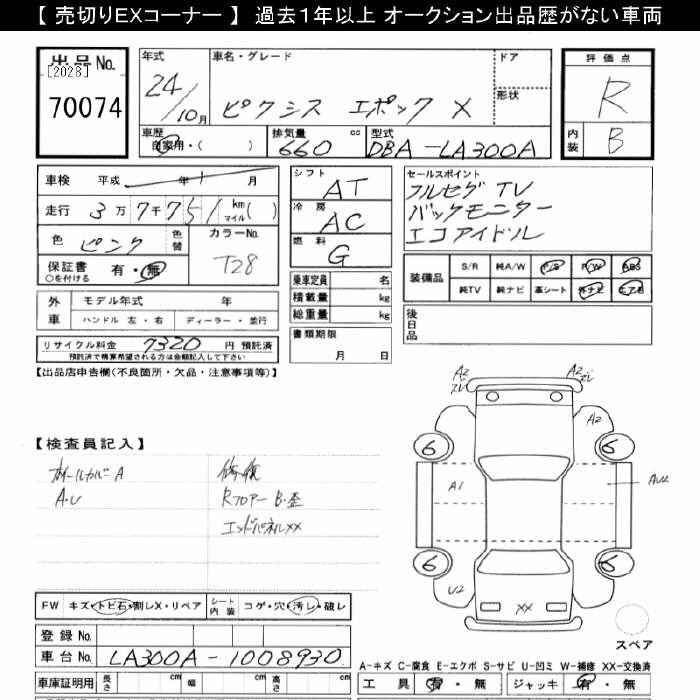 【 売切りEXコーナー 】 過去1年以上 オークション出品歴がない車両
出品No.
[2028]
70074
年式 車名・グレード ドア
24/10月 ピクシス エポック X
形状
車歴 排気量 cc 型式
自家用・( ) 660 DBA-LA300A
評価点
R
内装 B
車検 平成 年 月
走行 3万7千751 km マイル( )
色 ピンク 色替 カラーNo. T28
保証書 有・無
○を付ける
外車 モデル年式 年
ハンドル 左・右 ディーラー・並行
リサイクル料金 7320 円 預託済
預託済で精算希望される方は金額記入して下さい
シフト AT
冷房 AC
燃料 G
乗車定員 名
積載量 kg
総重量 kg
書類期限
月 日
セールスポイント
フルセグTV
バックモニター
エコアイドル
装備品 S/R 純A/W P/S P/W ABS
純TV 純ナビ 革シート 外ナビ エアB
後日品
【出品店申告欄(不良箇所・欠品・注意事項等)】
【検査員記入】
ホイールカバーA
A・U
修復
Rフロアー B・歪
エンドパネルXX
A2 ズレ
A2 ズレ
A2
6
6
A1
6
6
U2
XX
スペア
FW キズ・トビ石・割レX・リペア シート内装 コゲ・穴・汚レ・破レ
登録No.
車台No. LA300A-1008930
車庫証明用 長さ cm 幅 cm 高さ cm
A-キズ C-腐食 E-エクボ S-サビ U-凹ミ W-補修 XX-交換済
工具 有・無 ジャッキ 有・無